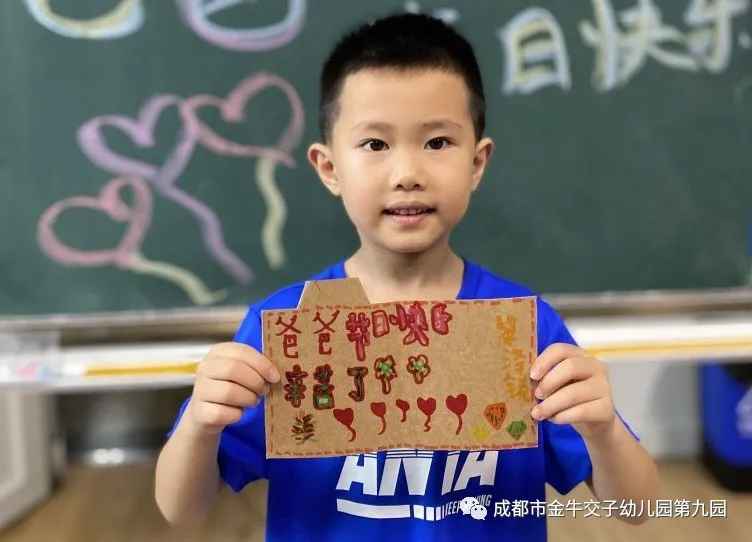 日快乐
爸爸节日快乐
辛苦了
ANTA
成都市金牛交子幼儿园第九园